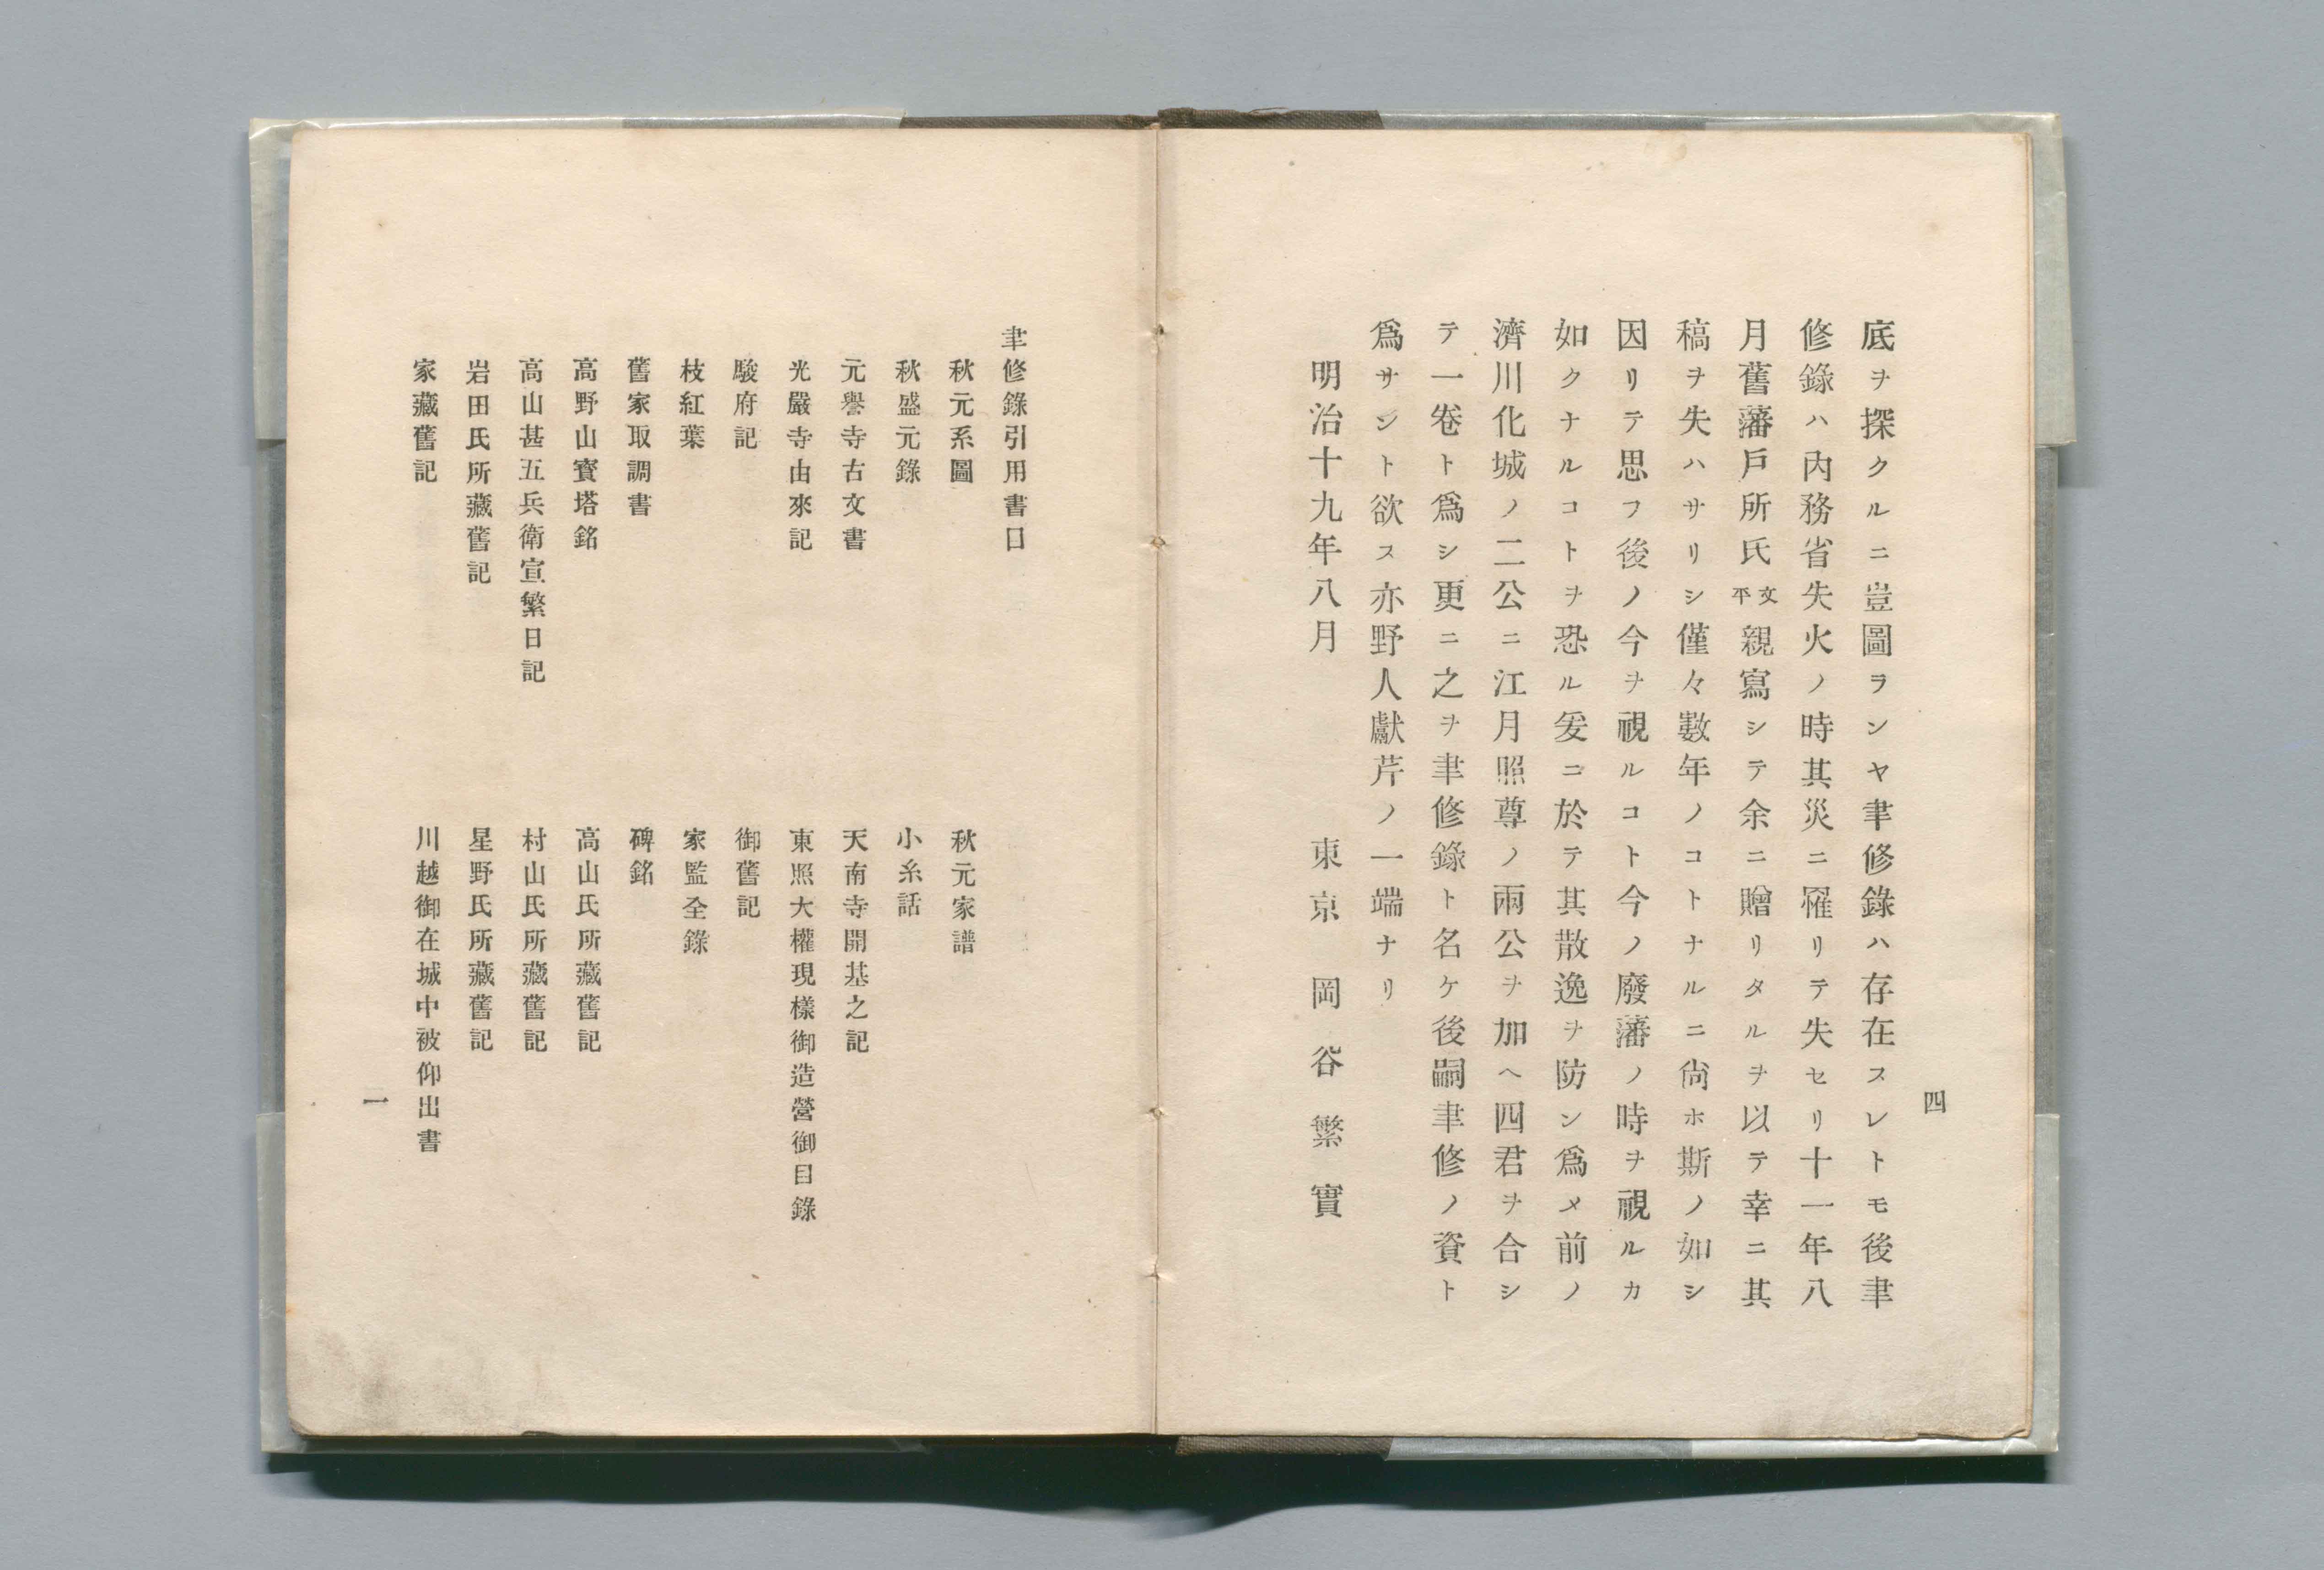 四
底ヲ探クルニ豈圖ランヤ聿修錄ハ存在スレトモ後聿
修錄ハ內務省失火ノ時其災ニ罹リテ失セリ十一年八
月舊藩戶所氏文平親寫シテ余ニ贈リタルヲ以テ幸ニ其
稿ヲ失ハサリシ僅々數年ノコトナルニ尙ホ斯ノ如シ
因リテ思フ後ノ今ヲ視ルコト今ノ廢藩ノ時ヲ視ルカ
如クナルコトヲ恐ル爰ニ於テ其散逸ヲ防ン爲メ前ノ
濟川化城ノ二公ニ江月照尊ノ兩公ヲ加ヘ四君ヲ合シ
テ一卷ト爲シ更ニ之ヲ聿修錄ト名ケ後嗣聿修ノ資ト
爲サント欲ス亦野人獻芹ノ一端ナリ
明治十九年八月
東京 岡谷繁實
聿修錄引用書目
秋元系圖
秋元家譜
秋盛元錄
小糸話
元譽寺古文書
天南寺開基之記
光嚴寺由來記
東照大權現樣御造營御目錄
駿府記
御舊記
枝紅葉
家監全錄
舊家取調書
碑銘
高野山寶塔銘
高山氏所藏舊記
高山甚五兵衛宣繁日記
村山氏所藏舊記
岩田氏所藏舊記
星野氏所藏舊記
家藏舊記
川越御在城中被仰出書
一